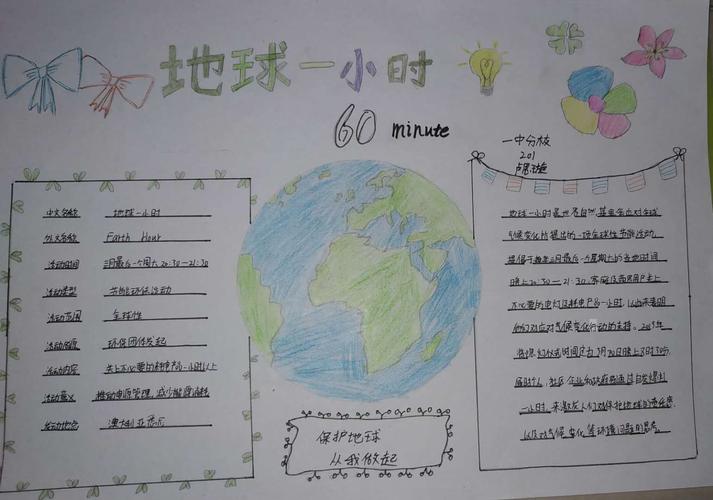 地球一小时
60 minute
一中分校
201
中文名称 地球一小时
外文名称 Earth Hour
活动时间 三月最后一个周六20:30—21:30
活动类型 节能环保活动
活动范围 全球性
活动起源 环保团体发起
活动内容 关上不必要的耗电产品一小时以上
活动意义 推动电源管理,减少能源消耗
发动地点 澳大利亚悉尼
地球一小时是世界自然基金会应对全球
气候变化所提出的一项全球性节能活动,
提倡于每年三月最后一个星期六的当地时间
晚上20:30—21:30,家庭及商界用户关上
不必要的电灯及耗电产品一小时,以此来表明
他们对应对气候变化行动的支持。
一小时,来激发人们对保护地球的责任感,
以及对气候变化等环境问题的思考。
保护地球
从我做起